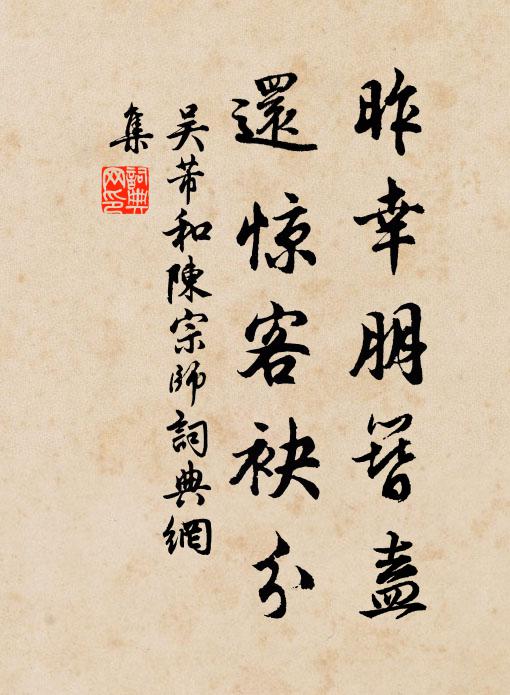 昨幸朋簪盍
還惊客袂分
吴芾和陳宗師詞典網
集
詞典网印